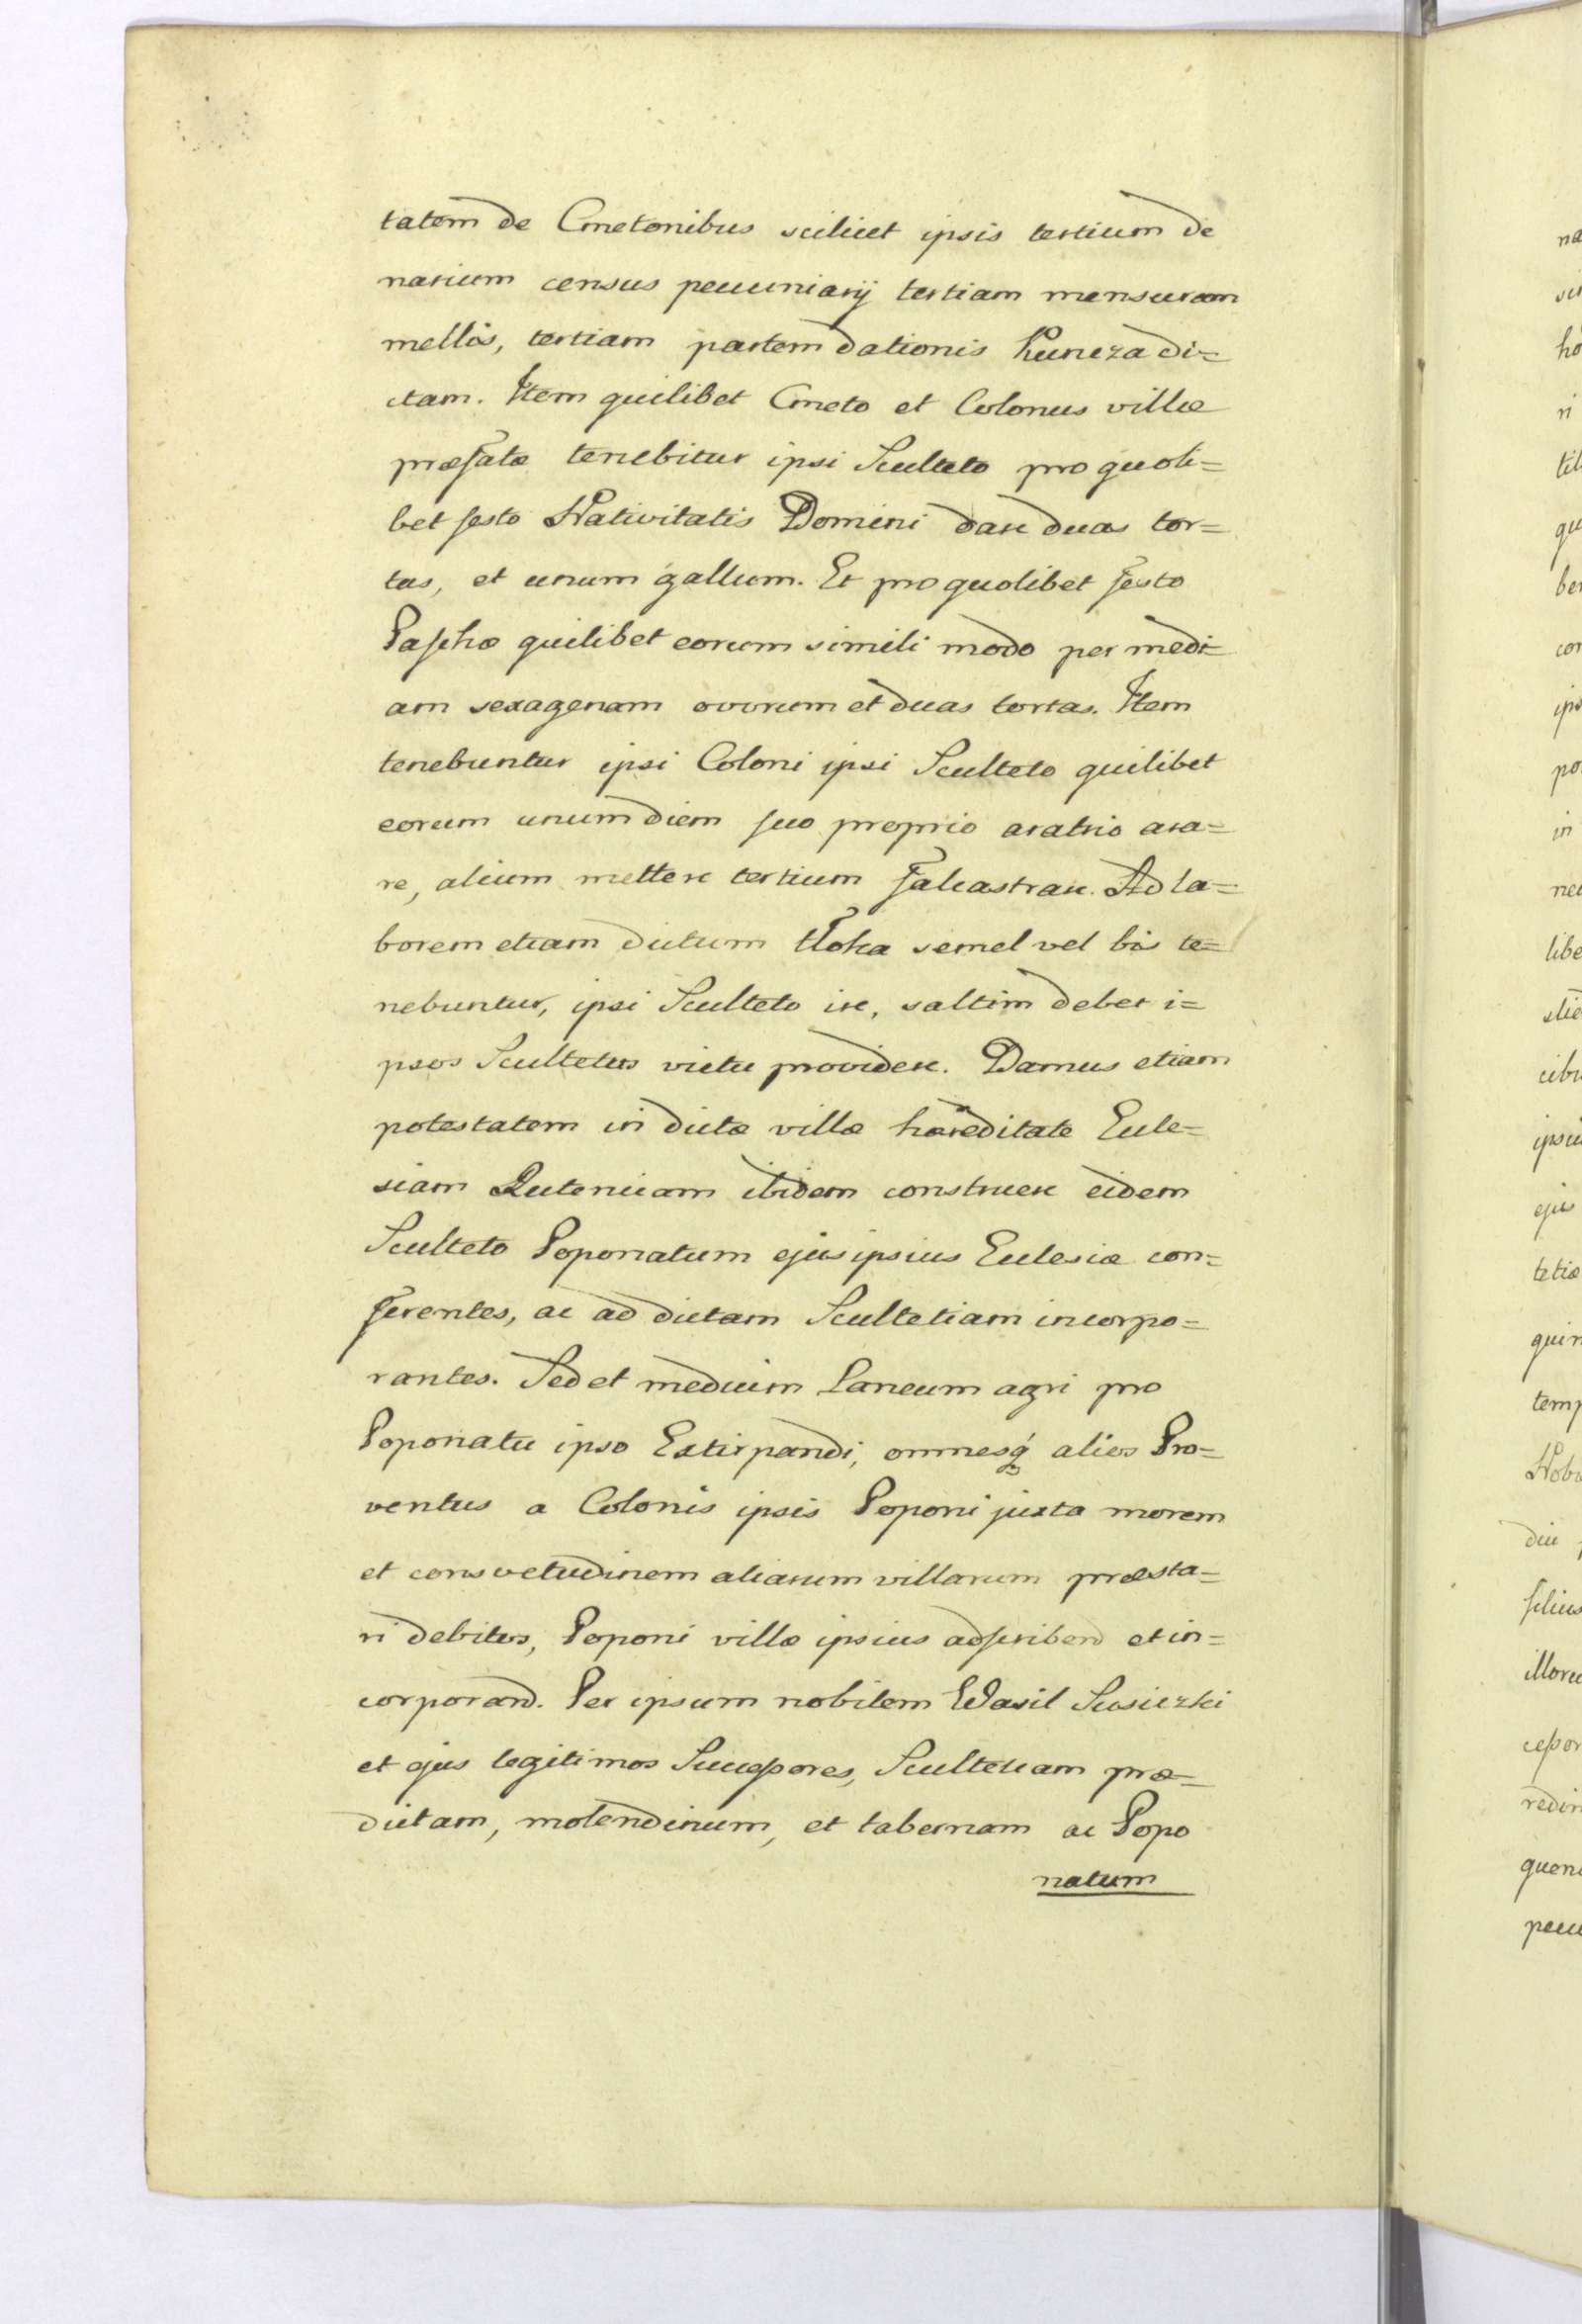 tatem de Cmetonibus scilicet ipsis tertium de
narium census pecuniarij tertiam mensuram
mellis, tertiam partem dationis Kuniza di=
ctam. Item quilibet Cmeto et Colonus villæ
præfatæ tenebitur ipsi Sculteto pro quoli=
bet festo Nativitatis Domini dare duas tor=
tas, et unum gallum. Et pro quolibet festo
Paschæ quilibet eorum simili modo per medi=
am sexagenam ovorum et duas tortas. Item
tenebuntur ipsi Coloni ipsi Sculteto quilibet
eorum unum diem suo proprio aratrio ara=
re, alium mettere tertium falcastrare. Ad la=
borem etiam dictum Tloka semel vel bis te=
nebuntur, ipsi Sculteto ire, saltim debet i=
psos Scultetus victu providere. Damus etiam
potestatem in dictæ villæ hæreditate Eccle=
siam Rutenicam ibidem construere eidem
Sculteto Poponatum ejus ipsius Ecclesiæ con=
ferentes, ac ad dictam Scultetiam incorpo=
rantes. Sed et medium Laneum agri pro
Poponatu ipso Extirpandi, omnesq́ alios Pro=
ventus a Colonis ipsis Poponi juxta morem
et consvetudinem aliarum villarum præsta=
ri debitos, Poponi villæ ipsius adscribend et in=
corporand. Per ipsum nobilem Wasil
et ejus legitimos Successores, Scultetiam præ=
dictam, molendinum, et tabernam ac Popo
natum
na
ho
ri
til
qu
ber
cor
ips
po
in
nec
libe
cibu
ipsiu
ejus
tetiæ
quin
temp
Nobi
diu
filius
illoru
cessor
redim
quem
pecu